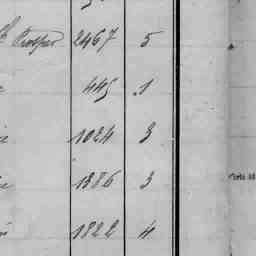 Prosper 2467 5
445 1
1024 3
1386 3
1822 4